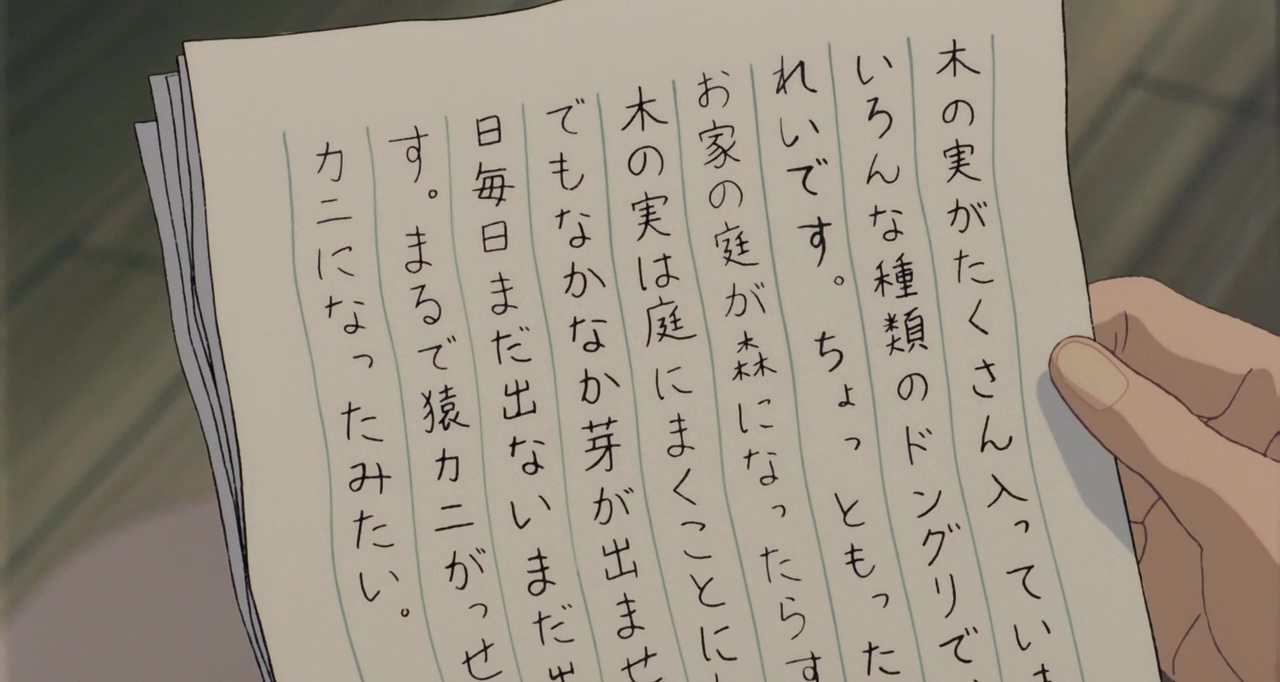 木の実がたくさん入ってい
いろんな種類のドングリで
れいです。ちょっともった
お家の庭が森になったらす
木の実は庭にまくことに
でもなかなか芽が出ませ
日毎日まだ出ないまだ
す。まるで猿カニがっせ
カニになったみたい。